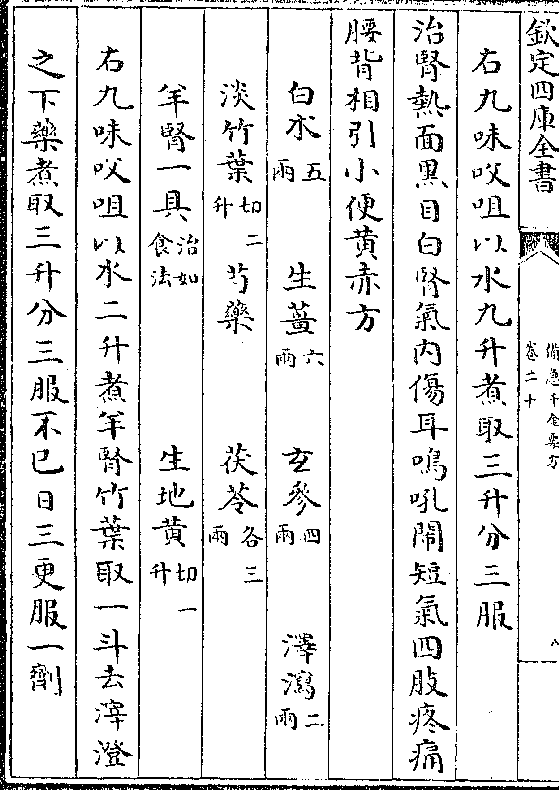 欽定四庫全書
備急千金要方
卷二十
八
右九味㕮咀以水九升煮取三升分三服
治腎熱面黒目白腎氣内傷耳鳴吼鬧短氣四肢疼痛
腰背相引小便黄赤方
白朮五兩 生薑六兩 玄參四兩 澤瀉二兩
淡竹葉切二升 芍藥 茯苓各三兩
羊腎一具治如食法 生地黄切一升
右九味㕮咀以水二升煮羊腎竹葉取一斗去滓澄
之下藥煮取三升分三服不已日三更服一劑